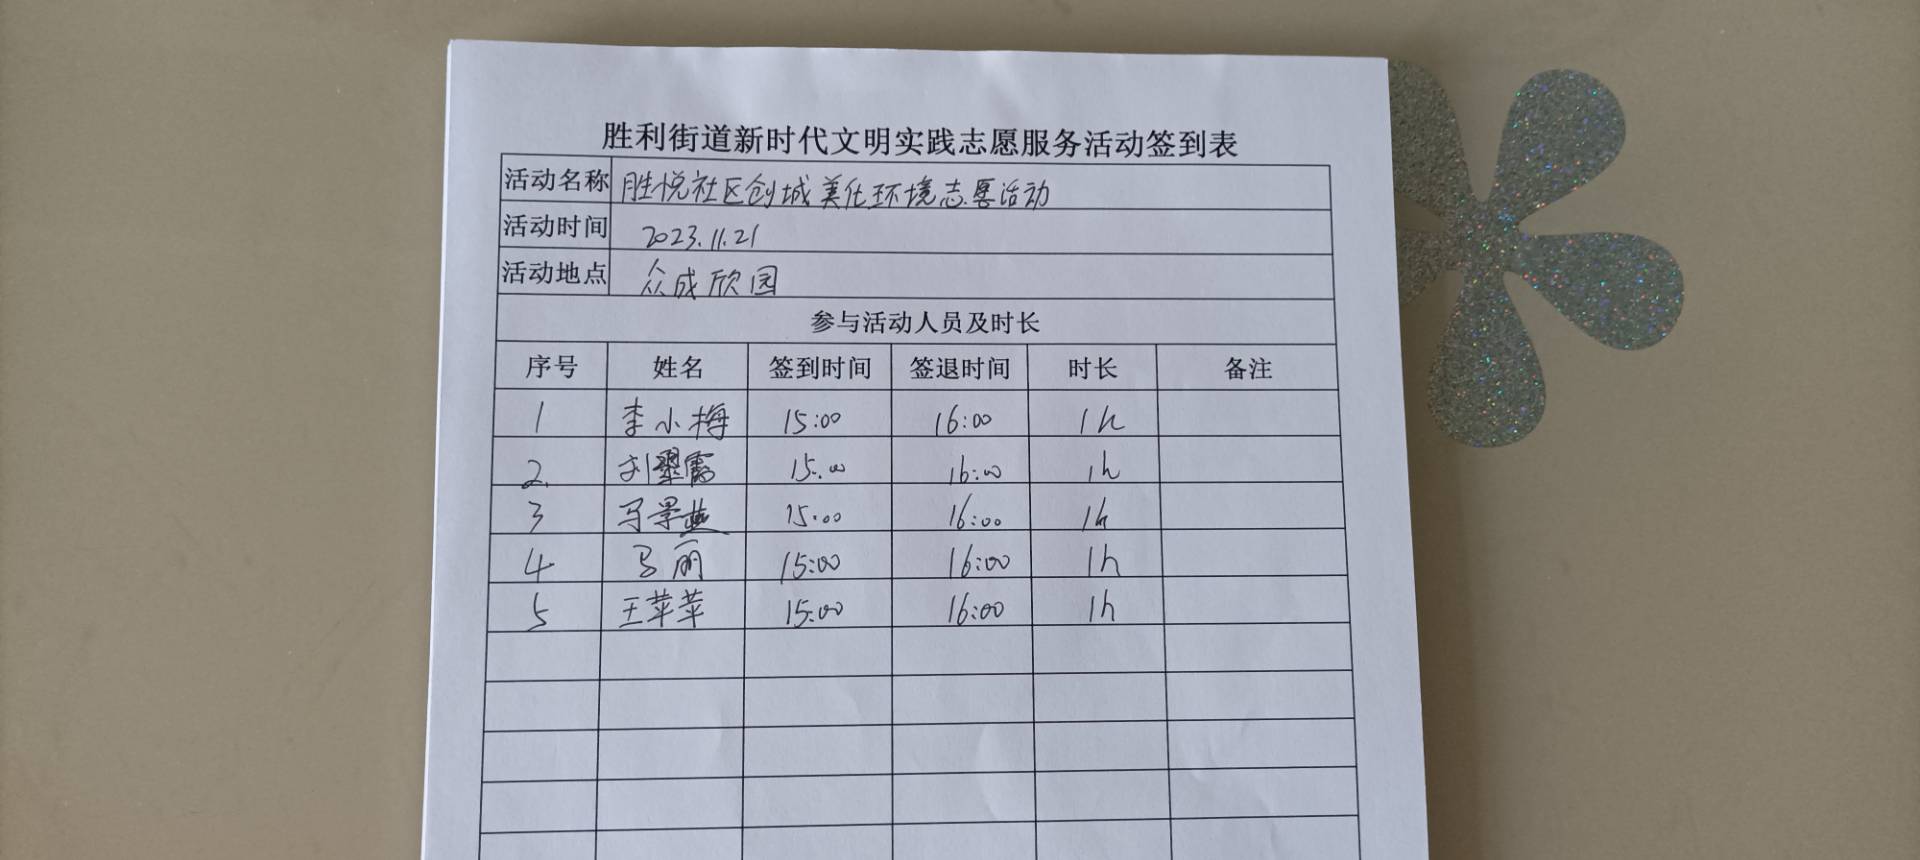 胜利街道新时代文明实践志愿服务活动签到表
活动名称 胜悦社区创城美化环境志愿活动
活动时间 2023.11.21
活动地点 众成欣园
参与活动人员及时长
序号 姓名 签到时间 签退时间 时长 备注
1 李小梅 15:00 16:00 1h
2. 刘翠霞 15:00 16:00 1h
3 马景燕 15:00 16:00 1h
4 马丽 15:00 16:00 1h
5 王苹苹 15:00 16:00 1h